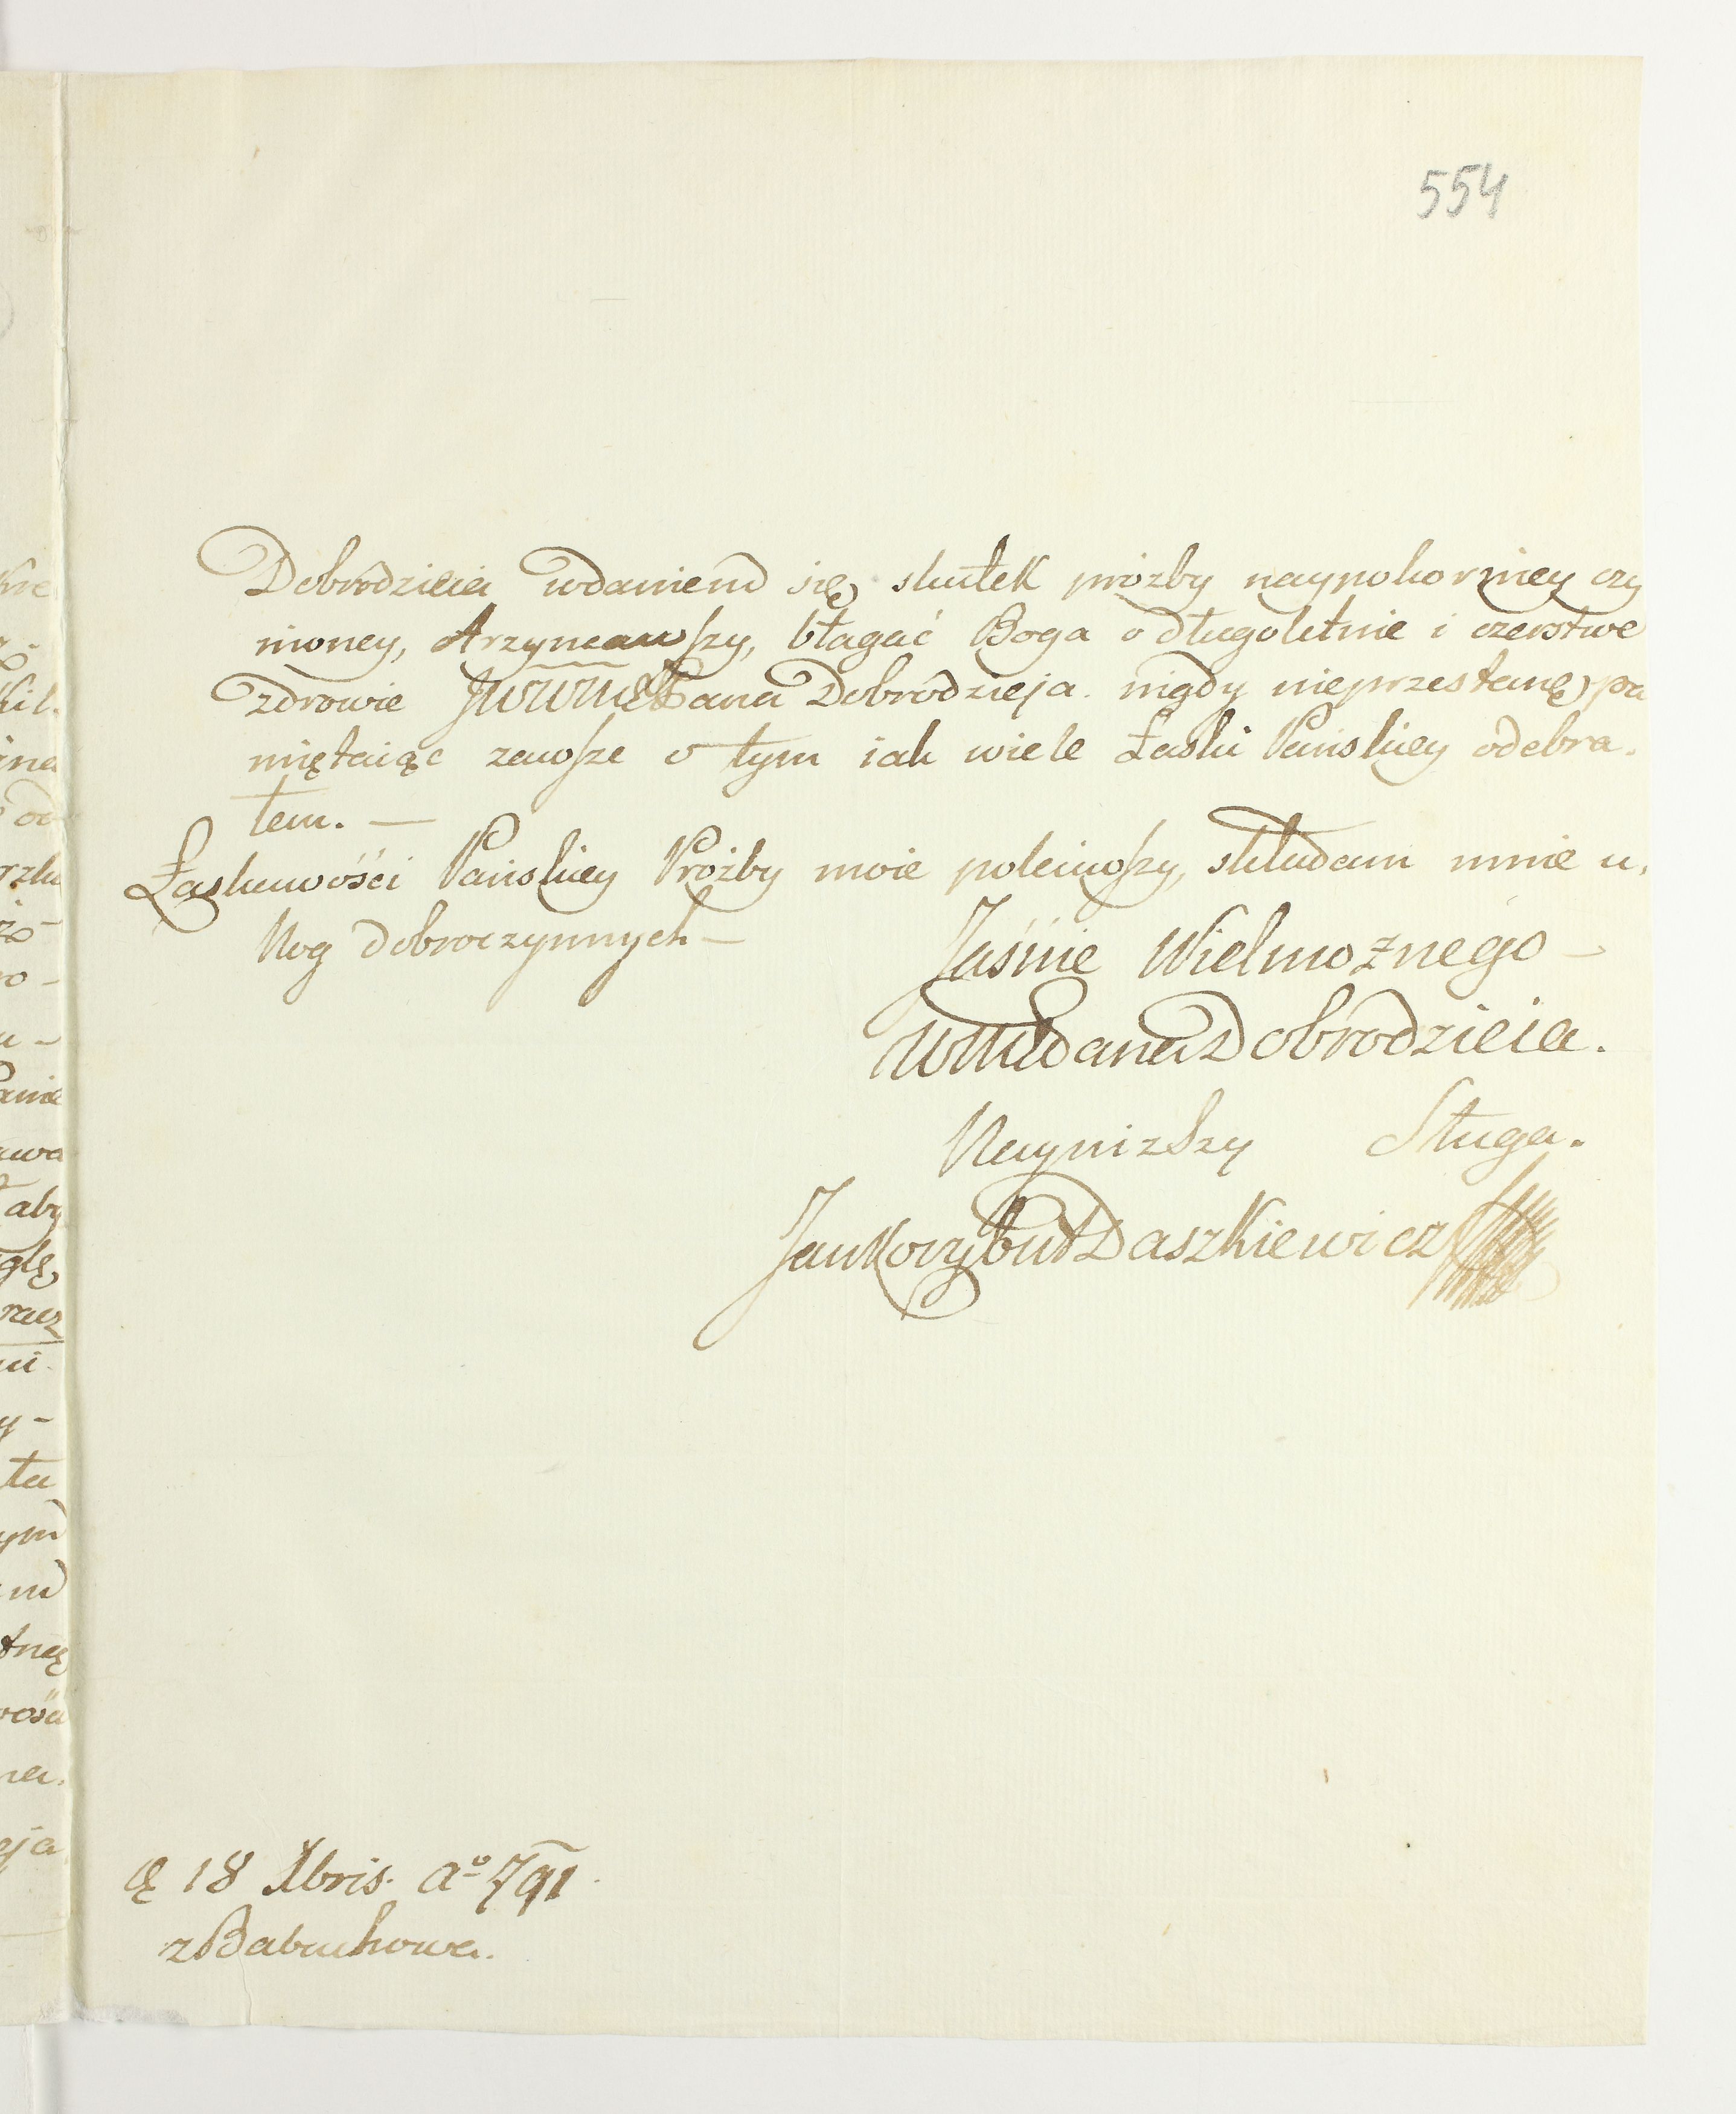 554
Dobrodzieia wdaniem się skutek prożby naypokorniey czy
nioney, otrzymawszy, błagać Boga o długoletnie i czerstwe
zdrowie JWWMPana Dobrodzieja nigdy nieprzestanę, pa
miętaiąc zawsze o tym iak wiele Łaski Pańskiey odebra.
łem. —
Łaskawości Pańskiey Prożby moie poleciwszy, składam mnie u.
Nog dobroczynnych —
Jaśnie Wielmożnego —
WMPana Dobrodzieia.
Nayniższy Sługa.
Jan Korybut Daszkiewicz
18 Xbris. Ao 791
z Babuchowa.